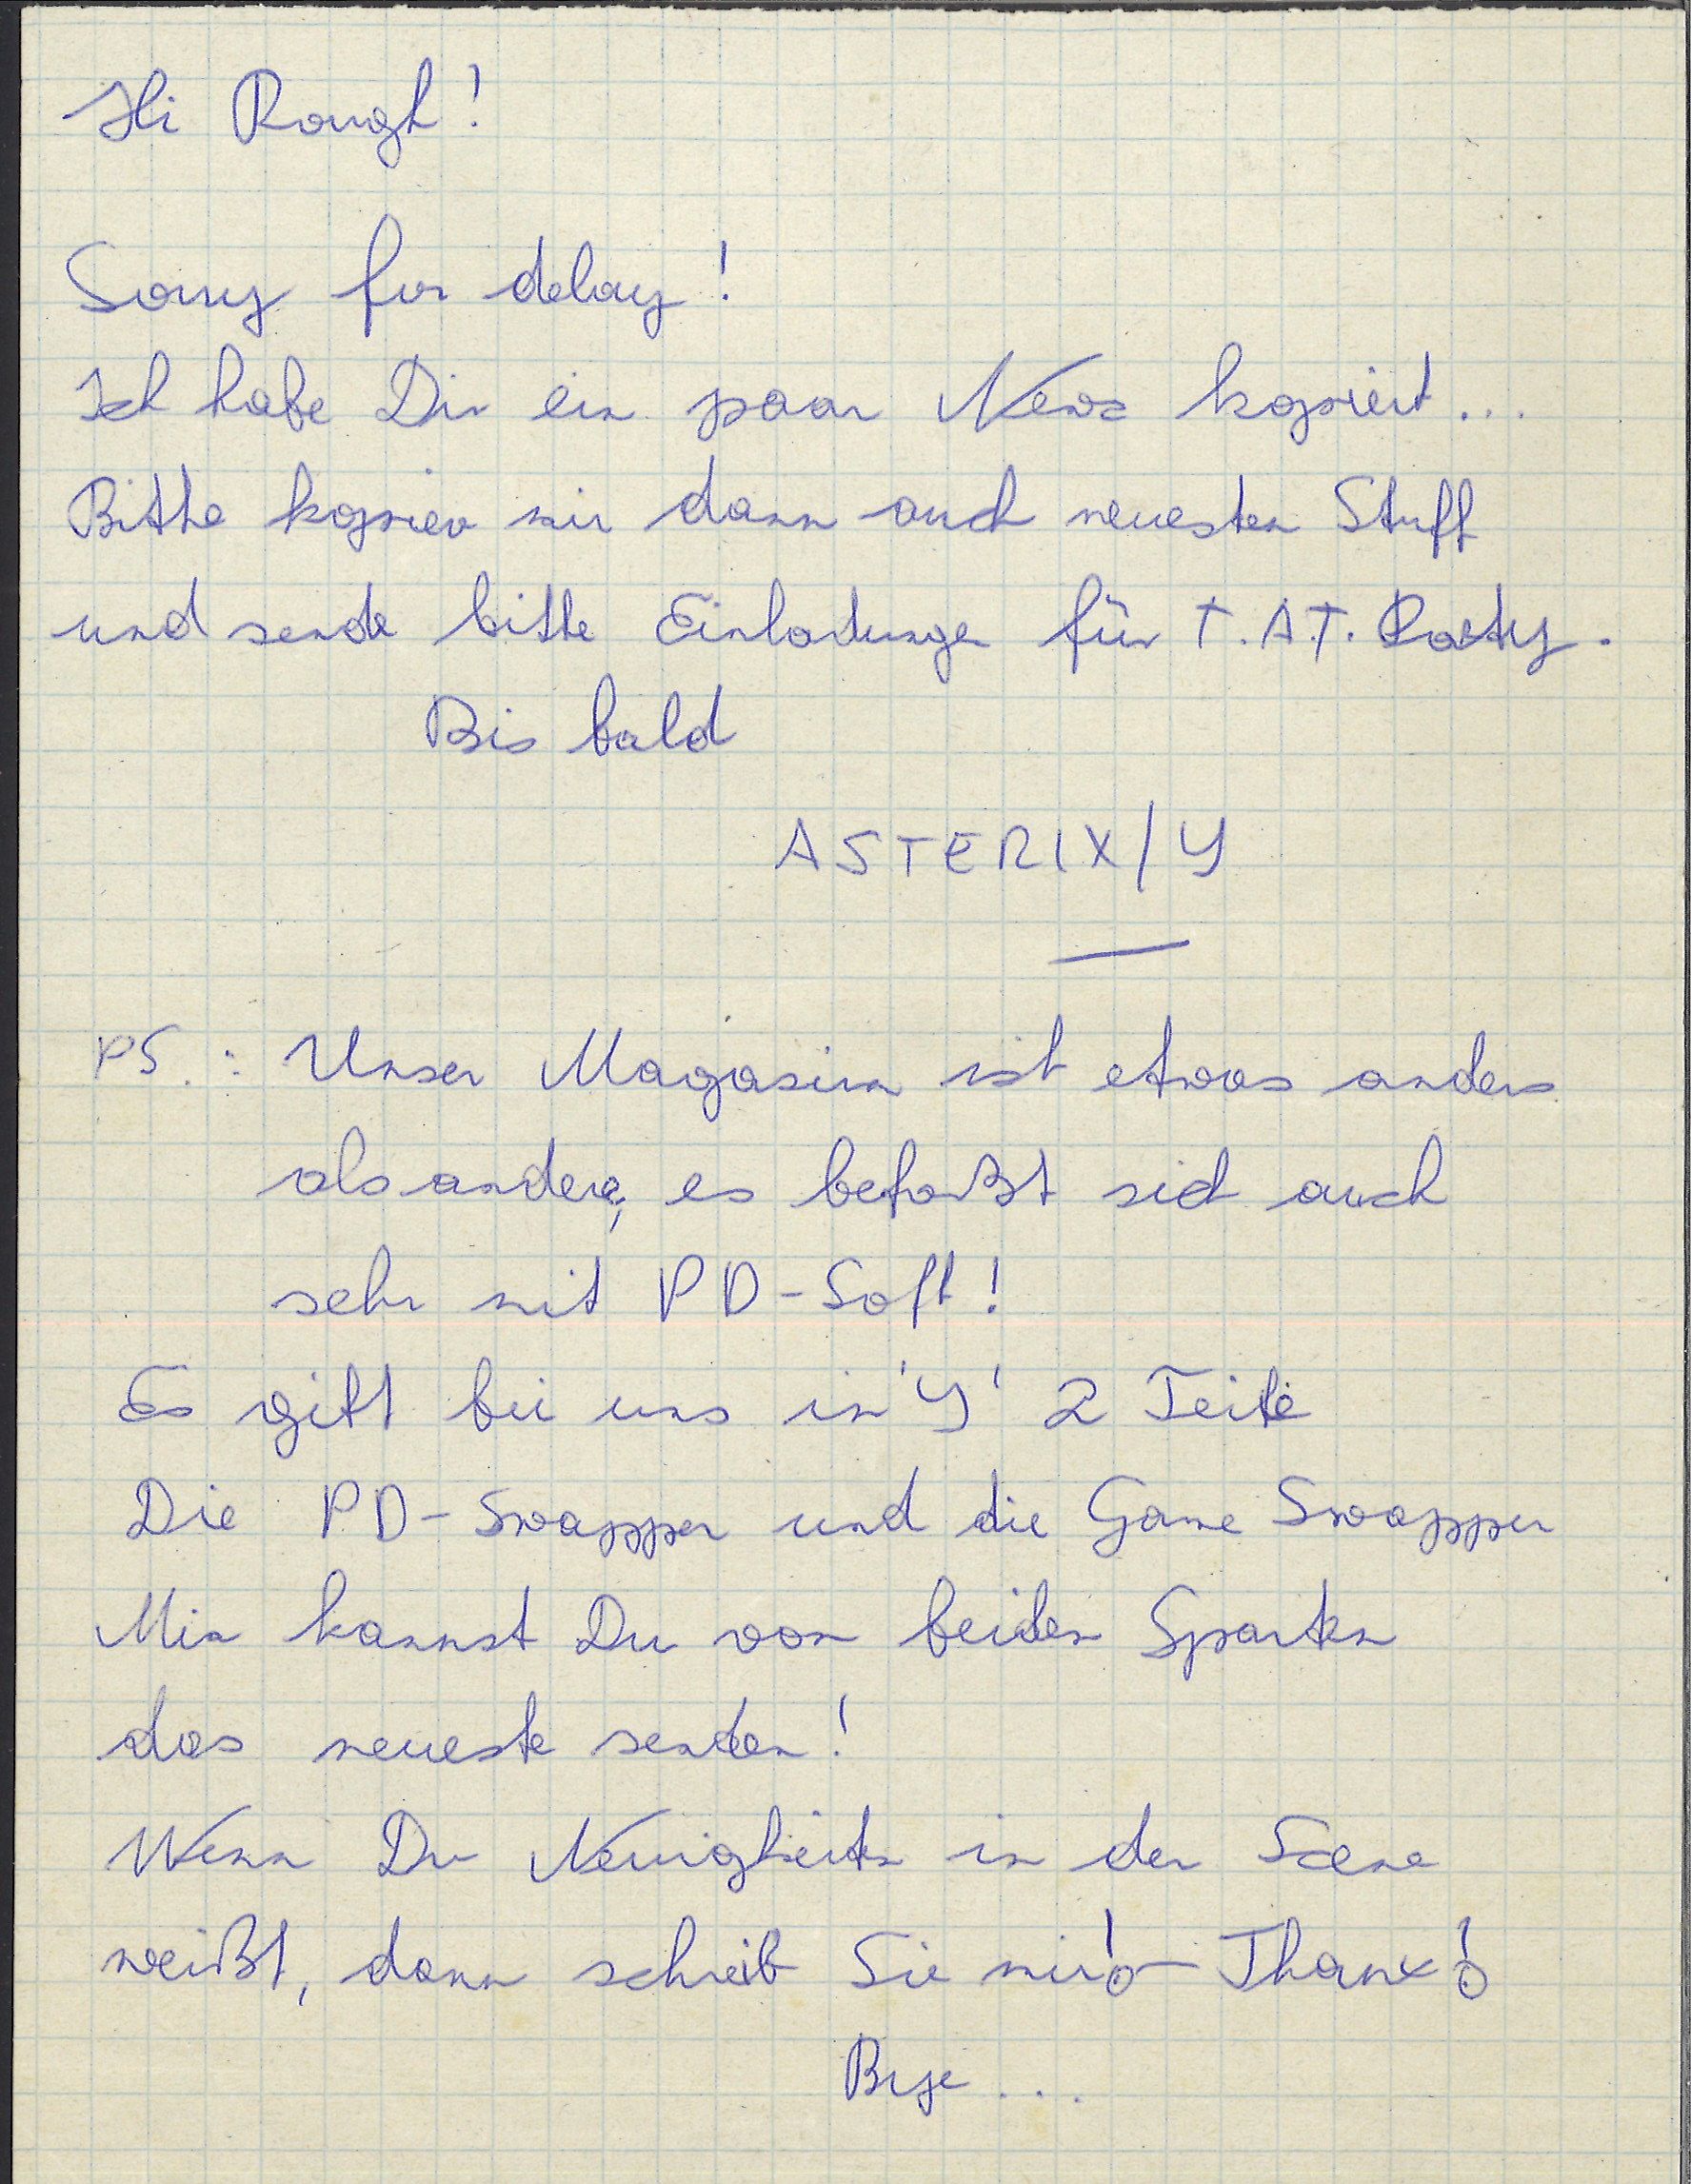 Hi Rough!
Sorry for delay!
Ich habe Dir ein paar News kopiert...
Bitte kopier mir dann auch neuesten Stuff
und sende bitte Einladungen für T.A.T. Party.
Bis bald
ASTERIX/Y
PS.: Unser Magasin ist etwas anders
als andere, es befaßt sich auch
sehr mit PD-Soft!
Es gibt bei uns in 'Y' 2 Teile
Die PD-Swapper und die Game Swapper
Mir kannst Du von beiden Sparten
das neueste senden!
Wenn Du Neuigkeiten in der Scene
weißt, dann schreib Sie mir! - Thanx!
Bye...